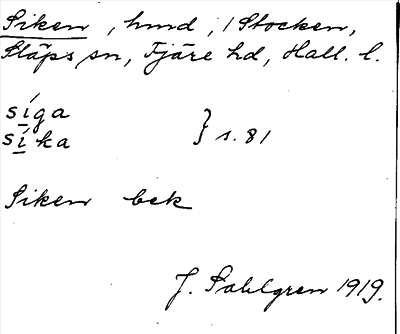 Siken, hmd, i Stocken,
Släps sn, Fjäre hd, Hall. l.
síga
síka } s. 81
Siken bek
J. Sahlgren 1919.